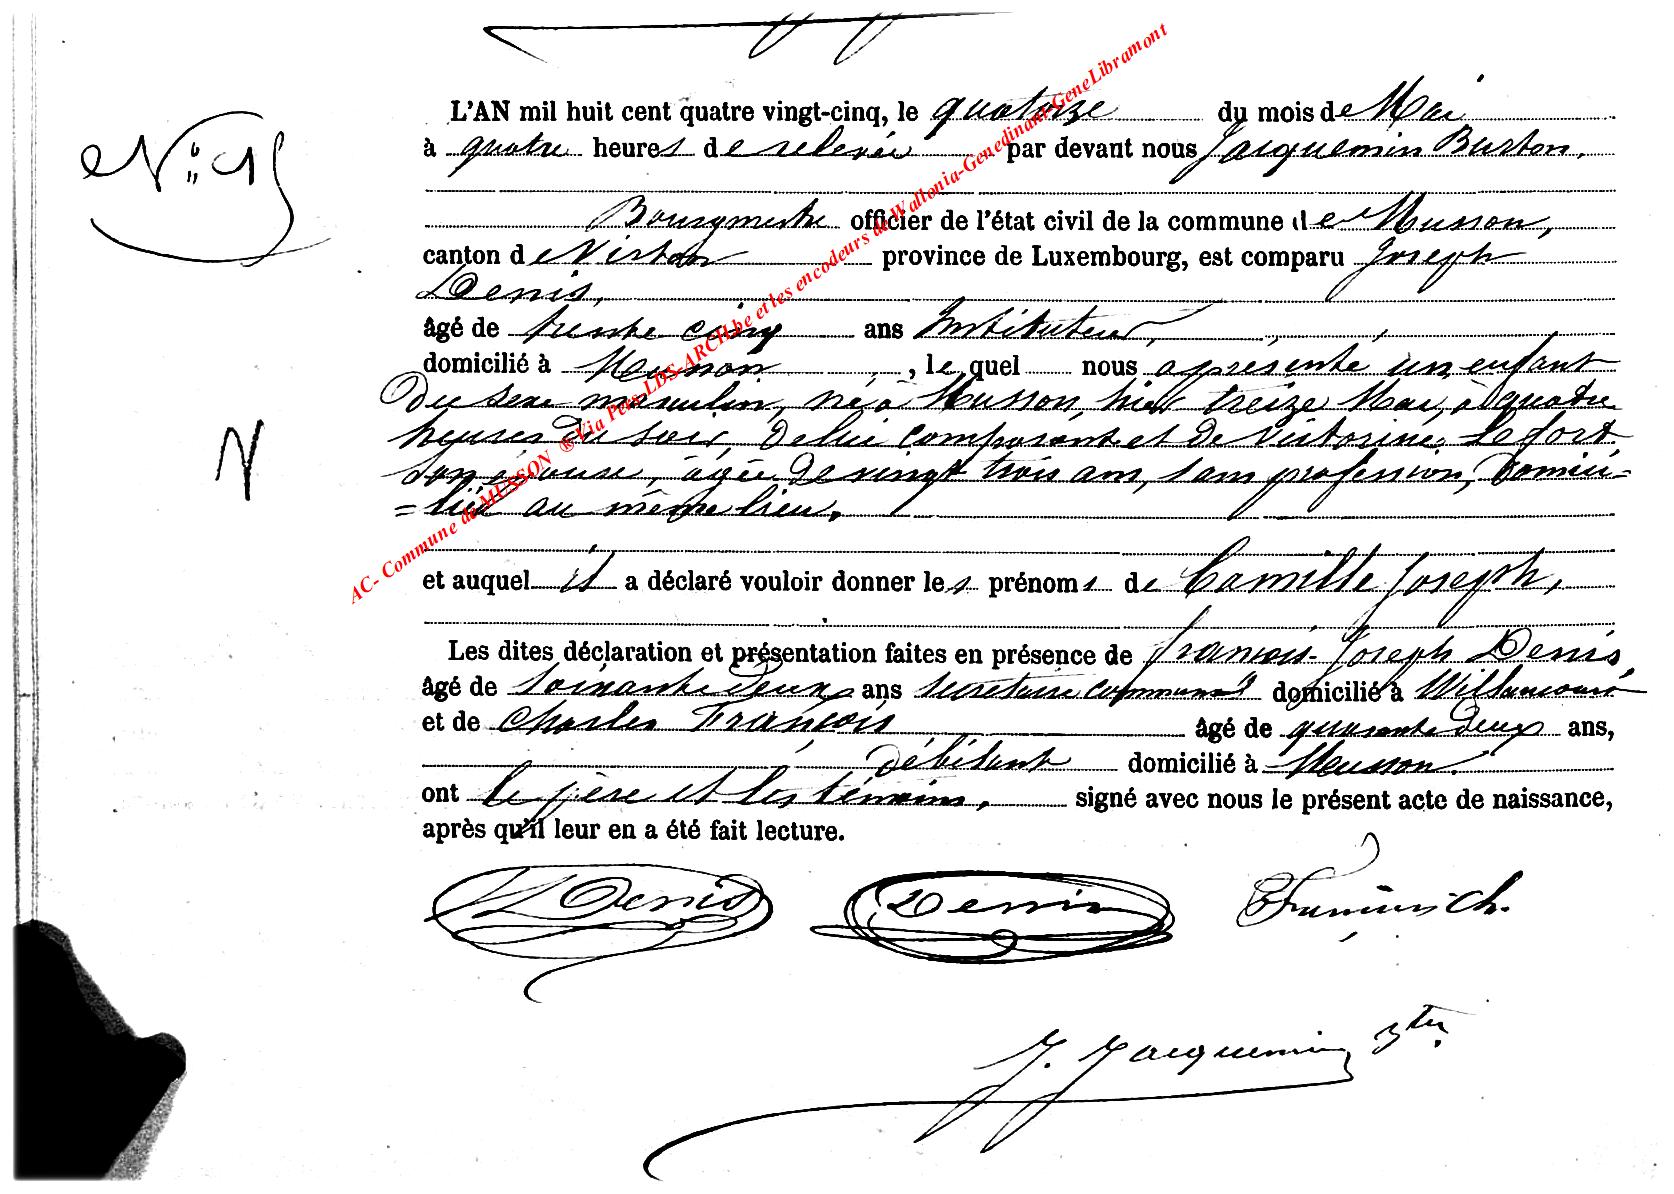 L'AN mil huit cent quatre vingt-cinq, le quatorze du mois de Mai
à quatre heures de relevée par devant nous Jacquemin Burton,
Bourgmestre officier de l'état civil de la commune de Musson,
canton de Virton province de Luxembourg, est comparu Joseph
Denis,
âgé de trente cinq ans Instituteur,
domicilié à Musson, lequel nous a présenté un enfant
Du sexe masculin, né à Musson, hier treize Mai, à quatre
heures du soir, de lui comparant et de Victorine Lefort
son épouse, âgée de vingt trois ans, sans profession, domici=
=liée au même lieu.
et auquel il a déclaré vouloir donner les prénoms de Camille Joseph,
Les dites déclaration et présentation faites en présence de François-Joseph Denis,
âgé de soixante deux ans secrétaire communal domicilié à Willancourt
et de Charles François âgé de quarante deux ans,
débitant domicilié à Musson.
ont le père et les témoins, signé avec nous le présent acte de naissance,
après qu'il leur en a été fait lecture.
Denis Denis François Ch.
J. Jacquemin
AC- Commune de MUSSON ® Via Pers-LDS-ARCH.be et les encodeurs de Wallonia-Genedinant-GeneLibramont